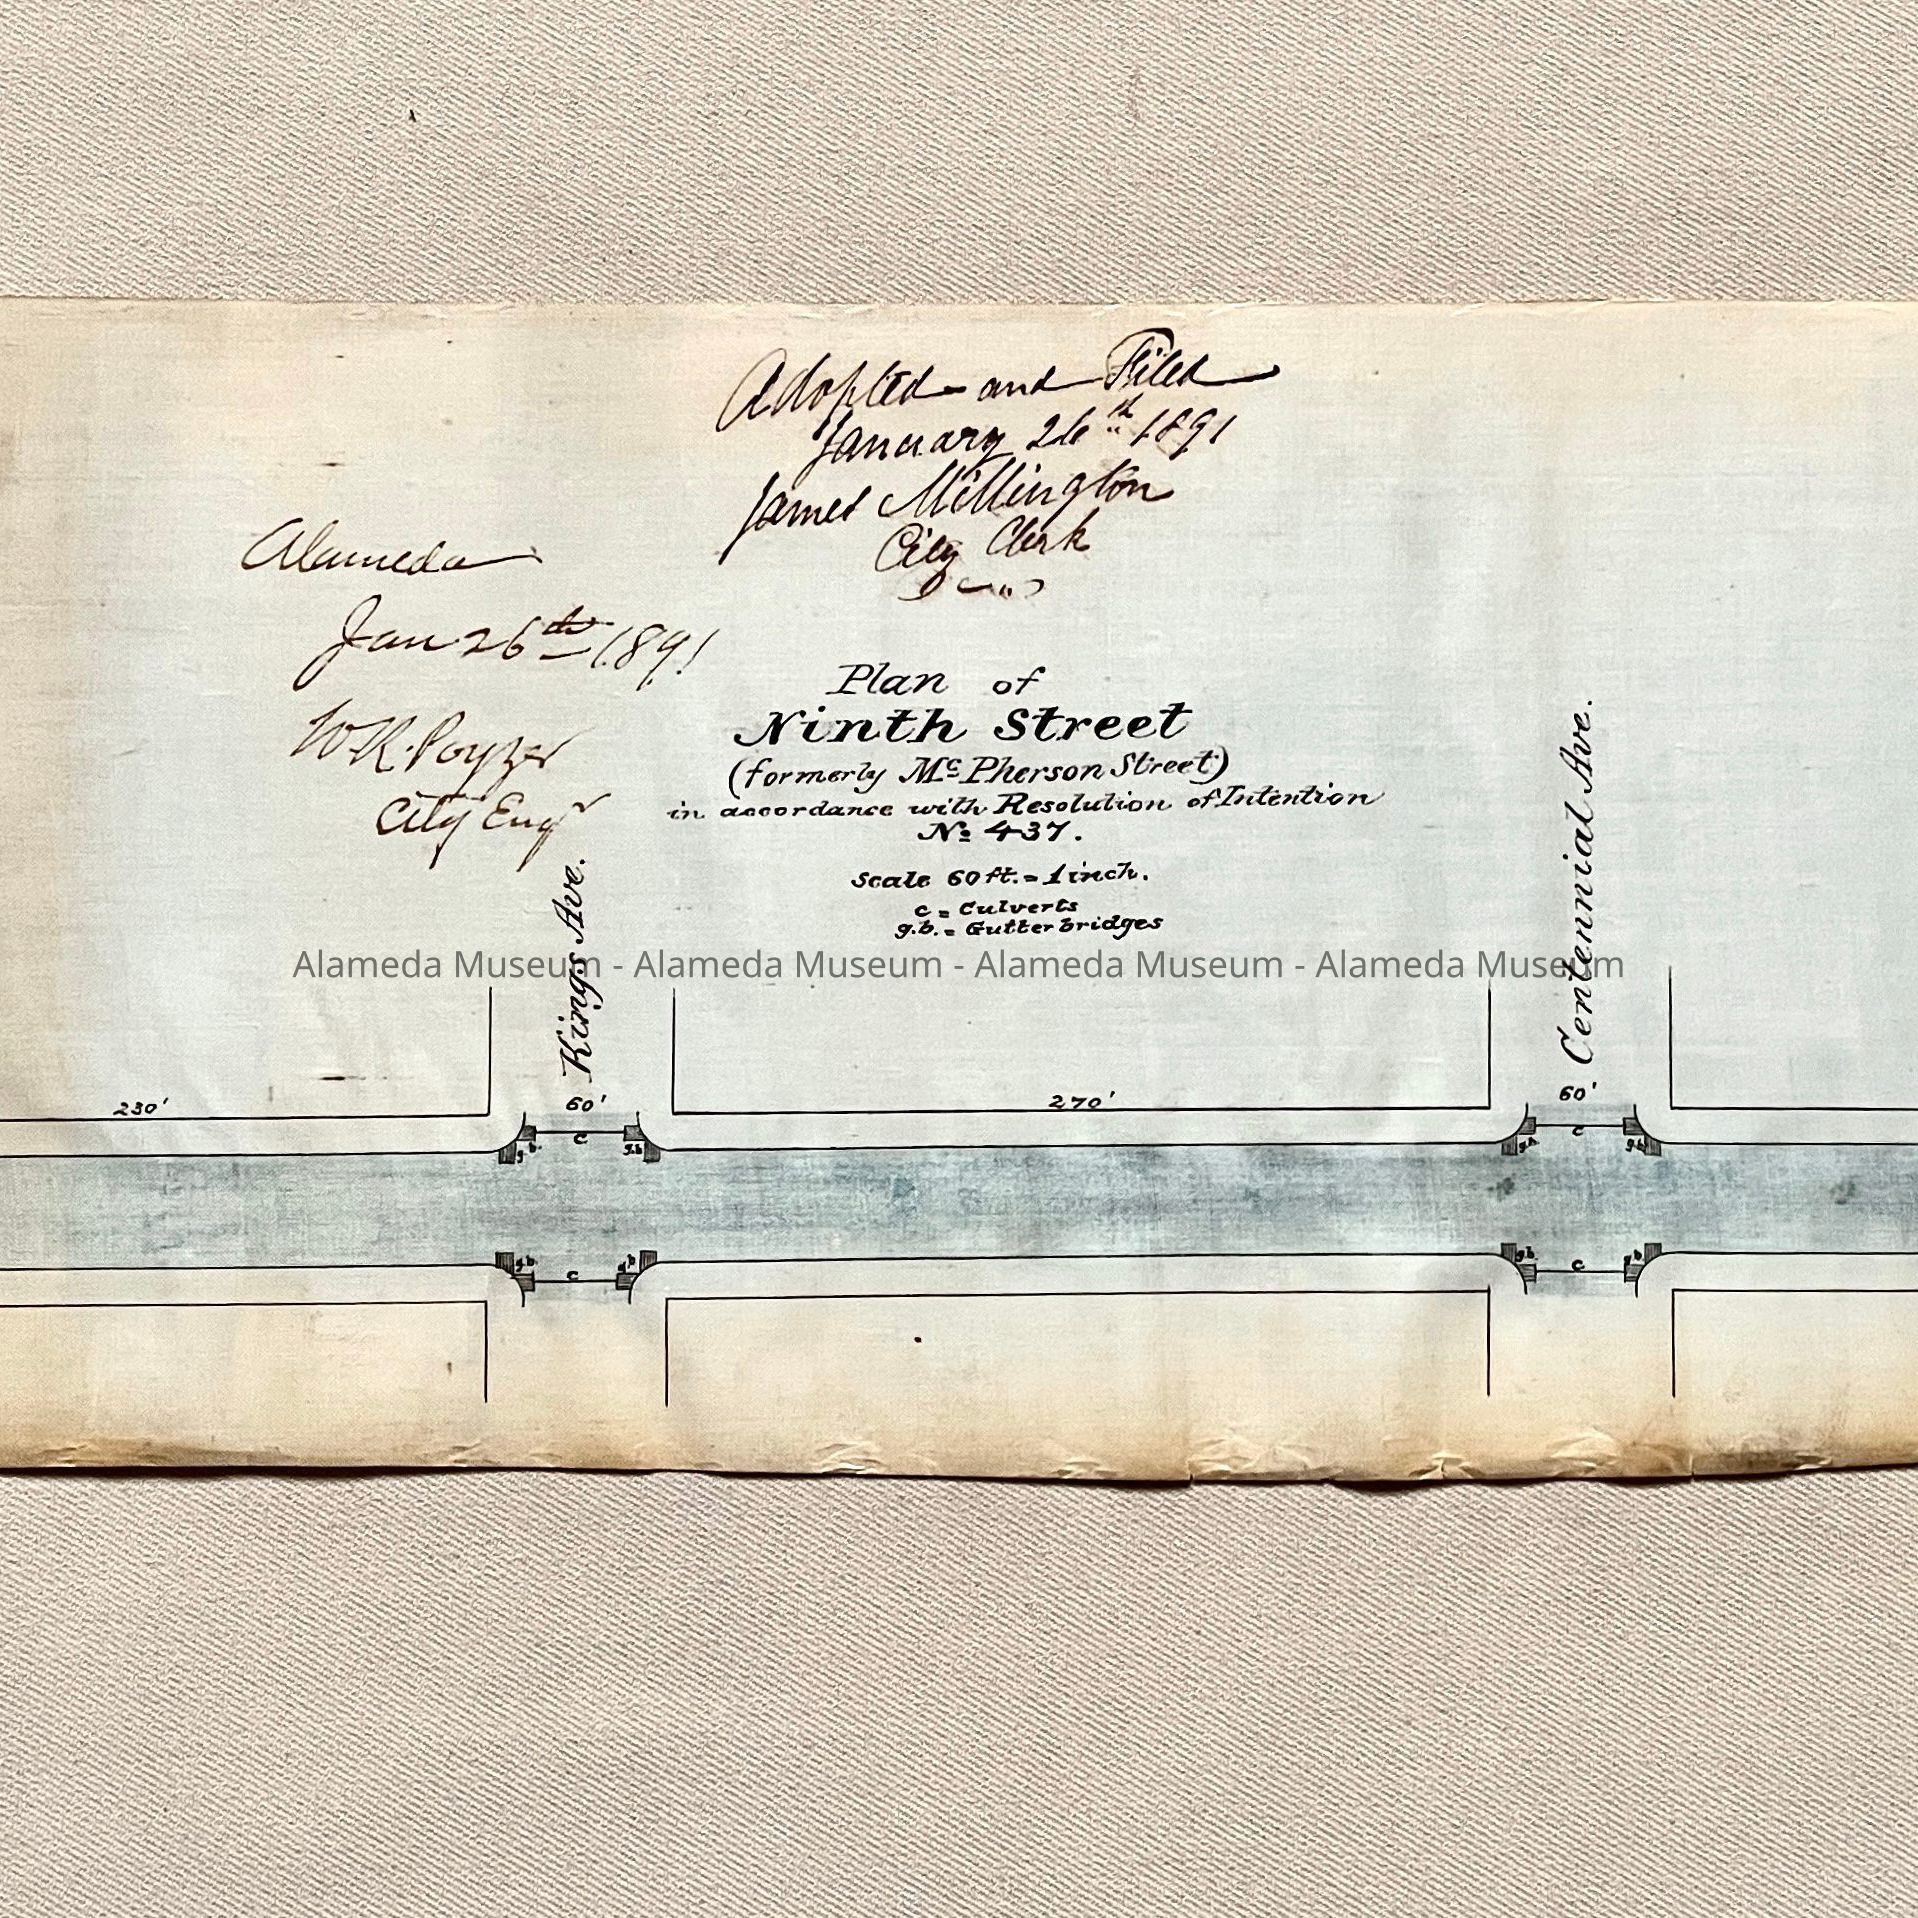 Adopted and Filed
January 26th 1891
James Millington
City Clerk
Alameda
Jan 26th 1891
W.R. Poyzer
City Engr
Plan of
Ninth Street
(formerly Mc Pherson Street)
in accordance with Resolution of Intention
No 437.
Scale 60 ft. = 1 inch.
c = Culverts
g.b. = Gutter bridges
Alameda Museum - Alameda Museum - Alameda Museum - Alameda Museum
Kings Ave.
Centennial Ave.
230'
60'
270'
60'
c
c
g.b.
g.b
g.b.
g.b.
g.b.
g.b
g.b.
g.b
c
c